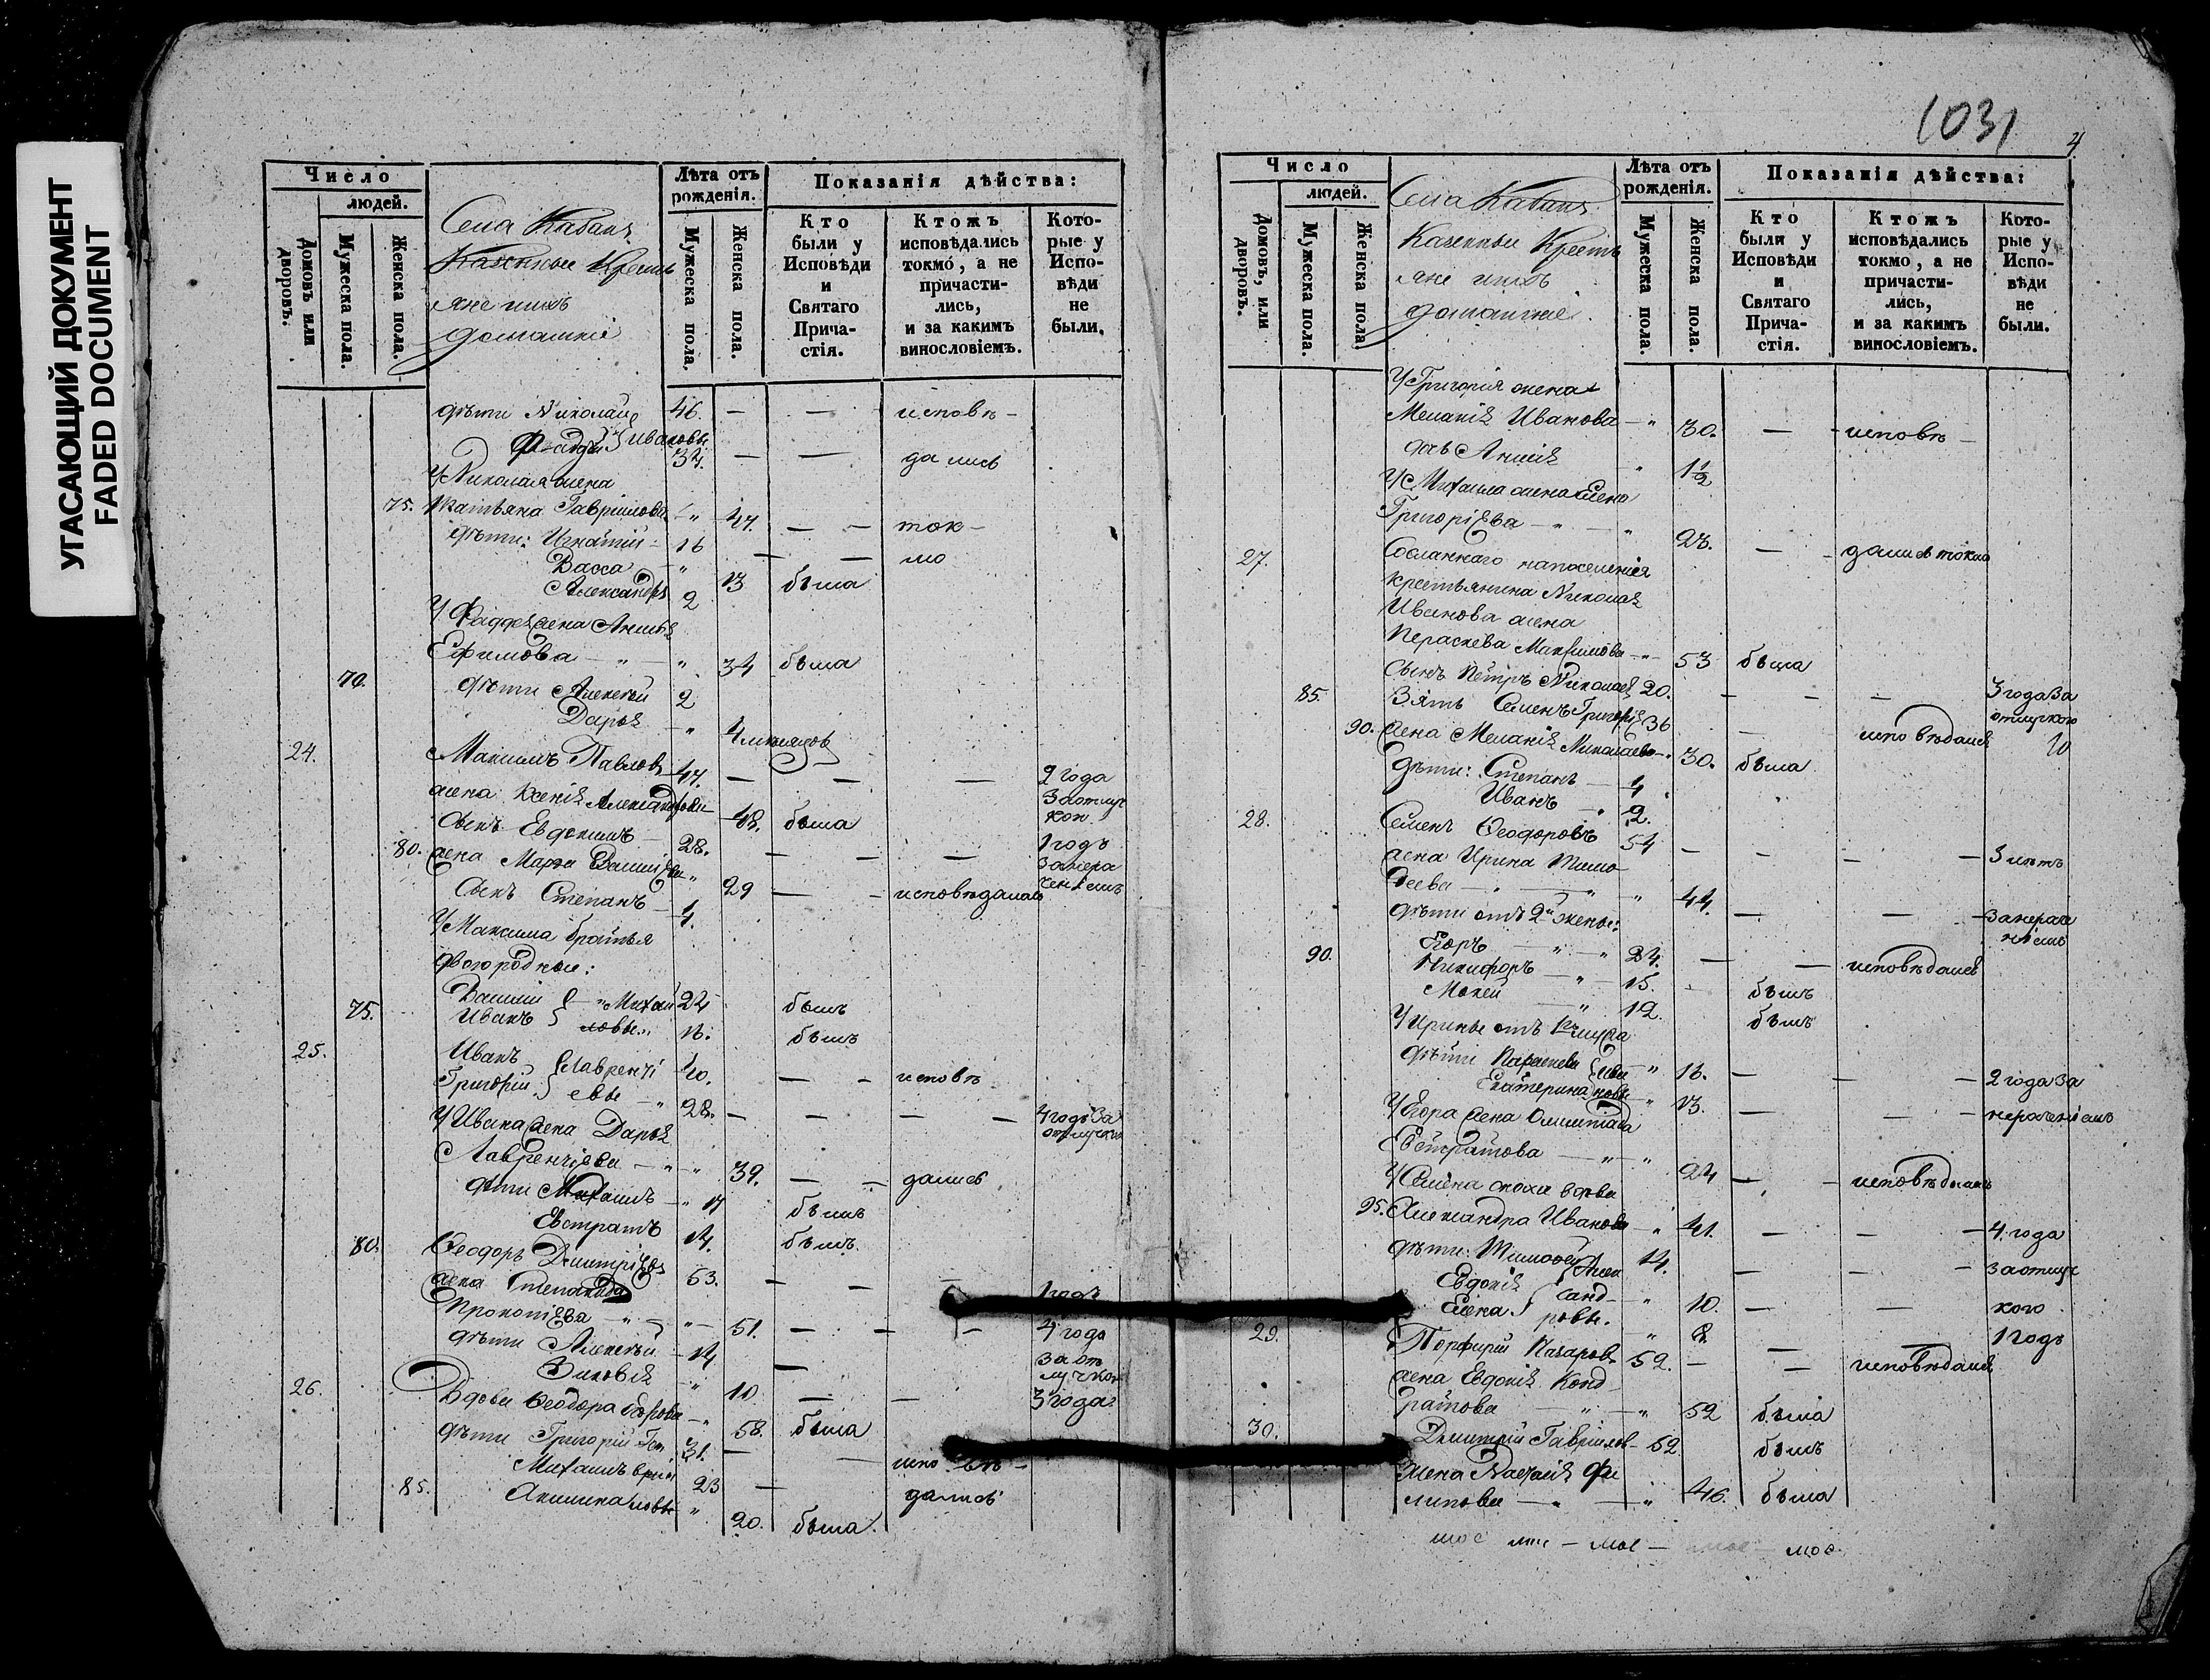 УГАСАЮЩИЙ ДОКУМЕНТ
FADED DOCUMENT
Число
людей.
Домовъ или дворовъ.
Мужеска пола.
Женска пола.
Села Кабаня
Казенные Кресть
яне и ихъ
домашніе
Лѣта отъ рожденія.
Мужеска пола.
Женска пола.
Показанія дѣйства:
Кто были у Исповѣди и Святаго Прича-стія.
Ктожъ исповѣдались токмо, а не причасти-лись, и за какимъ винословіемъ.
Кото-рые у Испо-вѣди не были.
дѣти Николай 46. — — исповѣ —
Фадѣй } Ивановы 34. — — дались
У Николая жена
75. Татьяна Гаврілова „ 47. — — ток —
дѣти: Игнатій 16 — — мо
Васса „ 13 была
Александръ 2
У Фаддея жена Анисья
Ефимова — „ — „ 34 была
70. дѣти Алексѣй 2
Дарья „ 4 мѣсяцов
24. Максимъ Павловъ 47. — — — 2 года
За отлуч
жена Ксенія Александрова 48. была кою
Сынъ Евдокимъ — 28. — — — 1 годъ
80. жена Марѳа Василіева „ 29 — — исповѣдалась
За нера
ченіемъ
Сынъ Степанъ 4.
У Максима братья
двоюродные:
Василій } „ Михай 24 былъ
75. Иванъ } ловы „ 18. былъ
25. Иванъ } Лаврентї 40. — — исповѣ
Григорій } евы — „ 28. — — — — 4 годъ За
отлучкою
У Ивана жена Дарья
Лаврентіева — „ — „ 39. — — дались
дѣти Михаилъ — „ 17 былъ
Евстратъ 14. былъ
80. Ѳеодоръ Димитріевъ 53. — — — 1 годъ
жена Степанида
Прокопіева — „ — „ — 51. — — — 4 года
дѣти Алексѣй — 14 — За от
лучкою
Зиновія „ 10 — — 3 года
26. Вдова Ѳеодора — „ 58. была
дѣти Григорій Гав 31. — — испо вѣ —
Михаилъ вріи 23 — дались
85. Акилина ловы „ 20. была.
1031
4
Число
людей.
Домовъ, или дворовъ.
Мужеска пола.
Женска пола.
Села Кабаня
Казенные Кресть
яне и ихъ
домашніе.
Лѣта отъ рожденія.
Мужеска пола.
Женска пола.
Показанія дѣйства:
Кто были у Исповѣди и Святаго Прича-стія.
Ктожъ исповѣдались токмо, а не причасти-лись, и за какимъ винословіемъ.
Кото-рые у Испо-вѣди не были.
У Григорія жена
Меланія Иванова — „ 30. — — исповѣ —
дочь Анисія „ 1½
У Михаила жена Елена
Григоріева — „ — „ 28. — — дались токмо
27. Сосланнаго на поселеніе
крестьянина Николая
Иванова жена
Параскева Максимова — „ 53 была
Сынъ Петръ Николаев 20. — — — 3 года За
отлучкою
85. Зять Семенъ Григорье 36 — исповѣдался
90. жена Меланія Николаева — „ 30. была
дѣти: Степанъ — 4
Иванъ — „ 2.
28. Семенъ Ѳеодоровъ 54 — — — — 3 лѣтъ
жена Ирина Тимо
ѳеева — „ — „ — „ 44. — — — За нераче
ніемъ
дѣти отъ 2й жены:
90. Егоръ — „ — „ 24. — — исповѣдался
Никифоръ — „ — 15. былъ
Мокей — „ 12. былъ
У Ирины отъ 1го мужа
дѣти Параскева } Ива „ 18. — — — 2 года За
Екатерина } новы „ 13. — — — нераченіемъ
У Егора жена Олимпіада
Евстратова — „ — „ 24 — — исповѣдалась
У Семена сноха вдова
95. Александра Иванова „ 41. — — — 4 года
дѣти: Тимоѳей } Алек 14. — — — За отлуч
Евдокія } санд — „ 10. — — кою.
Елена } ровы. „ 8. — 1 годъ
29. Порфирій Назаров 52. — — исповѣдался
жена Евдокія Конд
ратова — „ — „ 52 была
30. Димитрій Гаврилов — 52. былъ
жена Наталія Фи
липова — „ — „ 46. была